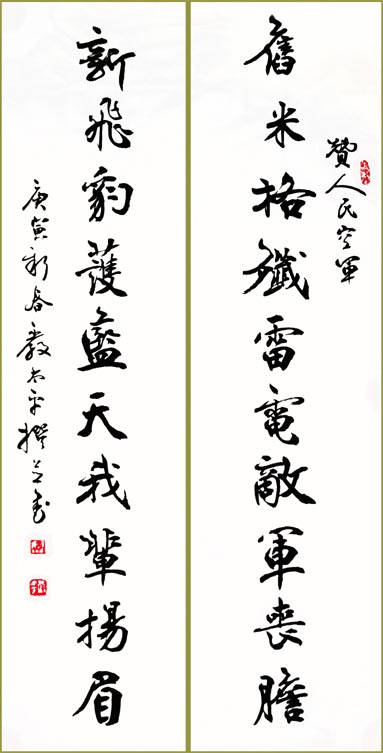 贊人民空軍
舊米格殲雷電敵軍喪膽
新飛豹護藍天我輩揚眉
庚寅新春嚴太平撰並書